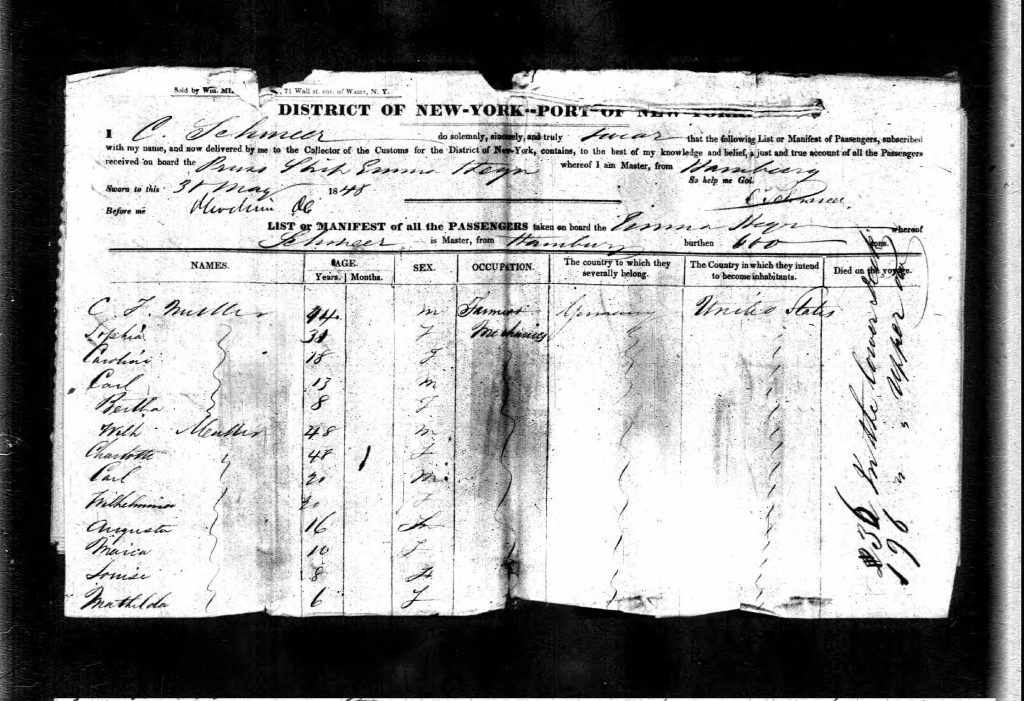 Sold by Wm. , 71 Wall st. cor. of Water, N. Y.
DISTRICT OF NEW-YORK--PORT OF NEW YORK.
I C. Schmeer do solemnly, sincerely, and truly swear that the following List or Manifest of Passengers, subscribed
with my name, and now delivered by me to the Collector of the Customs for the District of New-York, contains, to the best of my knowledge and belief, a just and true account of all the Passengers
received on board the Pruss Ship Emma Heyn whereof I am Master, from Hamburg
Sworn to this 31 May 1848 So help me God.
Before me C Schmeer.
LIST or MANIFEST of all the PASSENGERS taken on board the Emma Heyn whereof
Schmeer is Master, from Hamburg burthen 600 tons.
NAMES. AGE. Years. Months. SEX. OCCUPATION. The country to which they severally belong. The Country in which they intend to become inhabitants. Died on the voyage.
C F Muller 44 m Farmers Germany United States
Sophia 31 f Mechanics
Caroline 18 f
Carl 13 m
Bertha 8 f
Wilh Muller 48 m
Charlotte 48 f
Carl 20 m
Wilhelmina 20 f
Augusta 16 f
Maria 10 f
Louise 8 f
Mathilda 6 f
36 In the lower deck
196 " " upper do